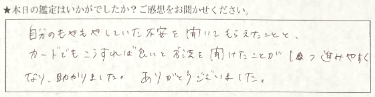 ★本日の鑑定はいかがでしたか？ご感想をお聞かせください。
自分のもやもやしていた不安を聞いてもらえたことと、
カードでもこうすれば良いと方法を聞けたことが 進みやすく
なり、助かりました。ありがとうございました。